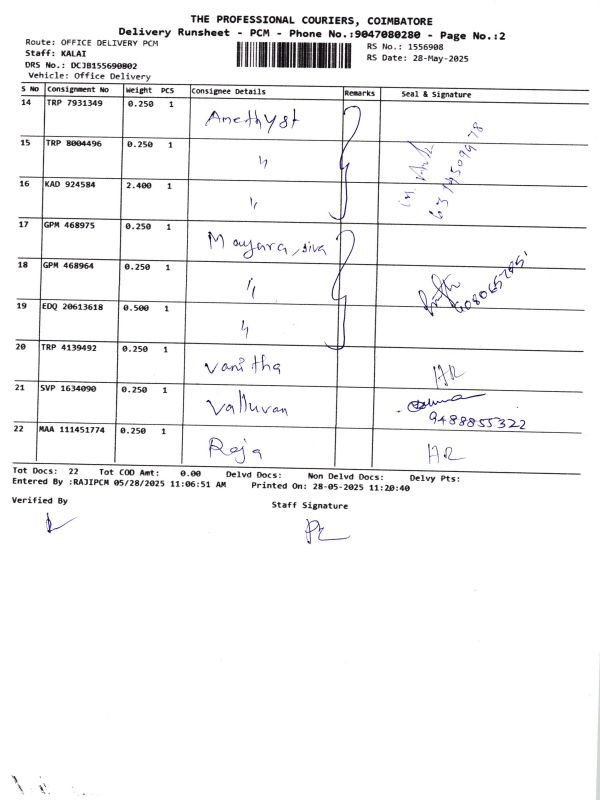 THE PROFESSIONAL COURIERS, COIMBATORE
Delivery Runsheet - PCM - Phone No.:9047080280 - Page No.:2
Route: OFFICE DELIVERY PCM
RS No.: 1556908
Staff: KALAI
RS Date: 28-May-2025
DRS No.: DCJB155690802
Vehicle: Office Delivery
S No Consignment No Weight PCS Consignee Details Remarks Seal & Signature
14 TRP 7931349 0.250 1 Amethyst
15 TRP 8004496 0.250 1 "
16 KAD 924584 2.400 1 "
17 GPM 468975 0.250 1
18 GPM 468964 0.250 1 "
19 EDQ 20613618 0.500 1 "
20 TRP 4139492 0.250 1 Vanitha
21 SVP 1634090 0.250 1 Valluvan 9488855322
22 MAA 111451774 0.250 1 Raja
Tot Docs: 22 Tot COD Amt: 0.00 Delvd Docs: Non Delvd Docs: Delvy Pts:
Entered By :RAJIPCM 05/28/2025 11:06:51 AM Printed On: 28-05-2025 11:20:40
Verified By
Staff Signature